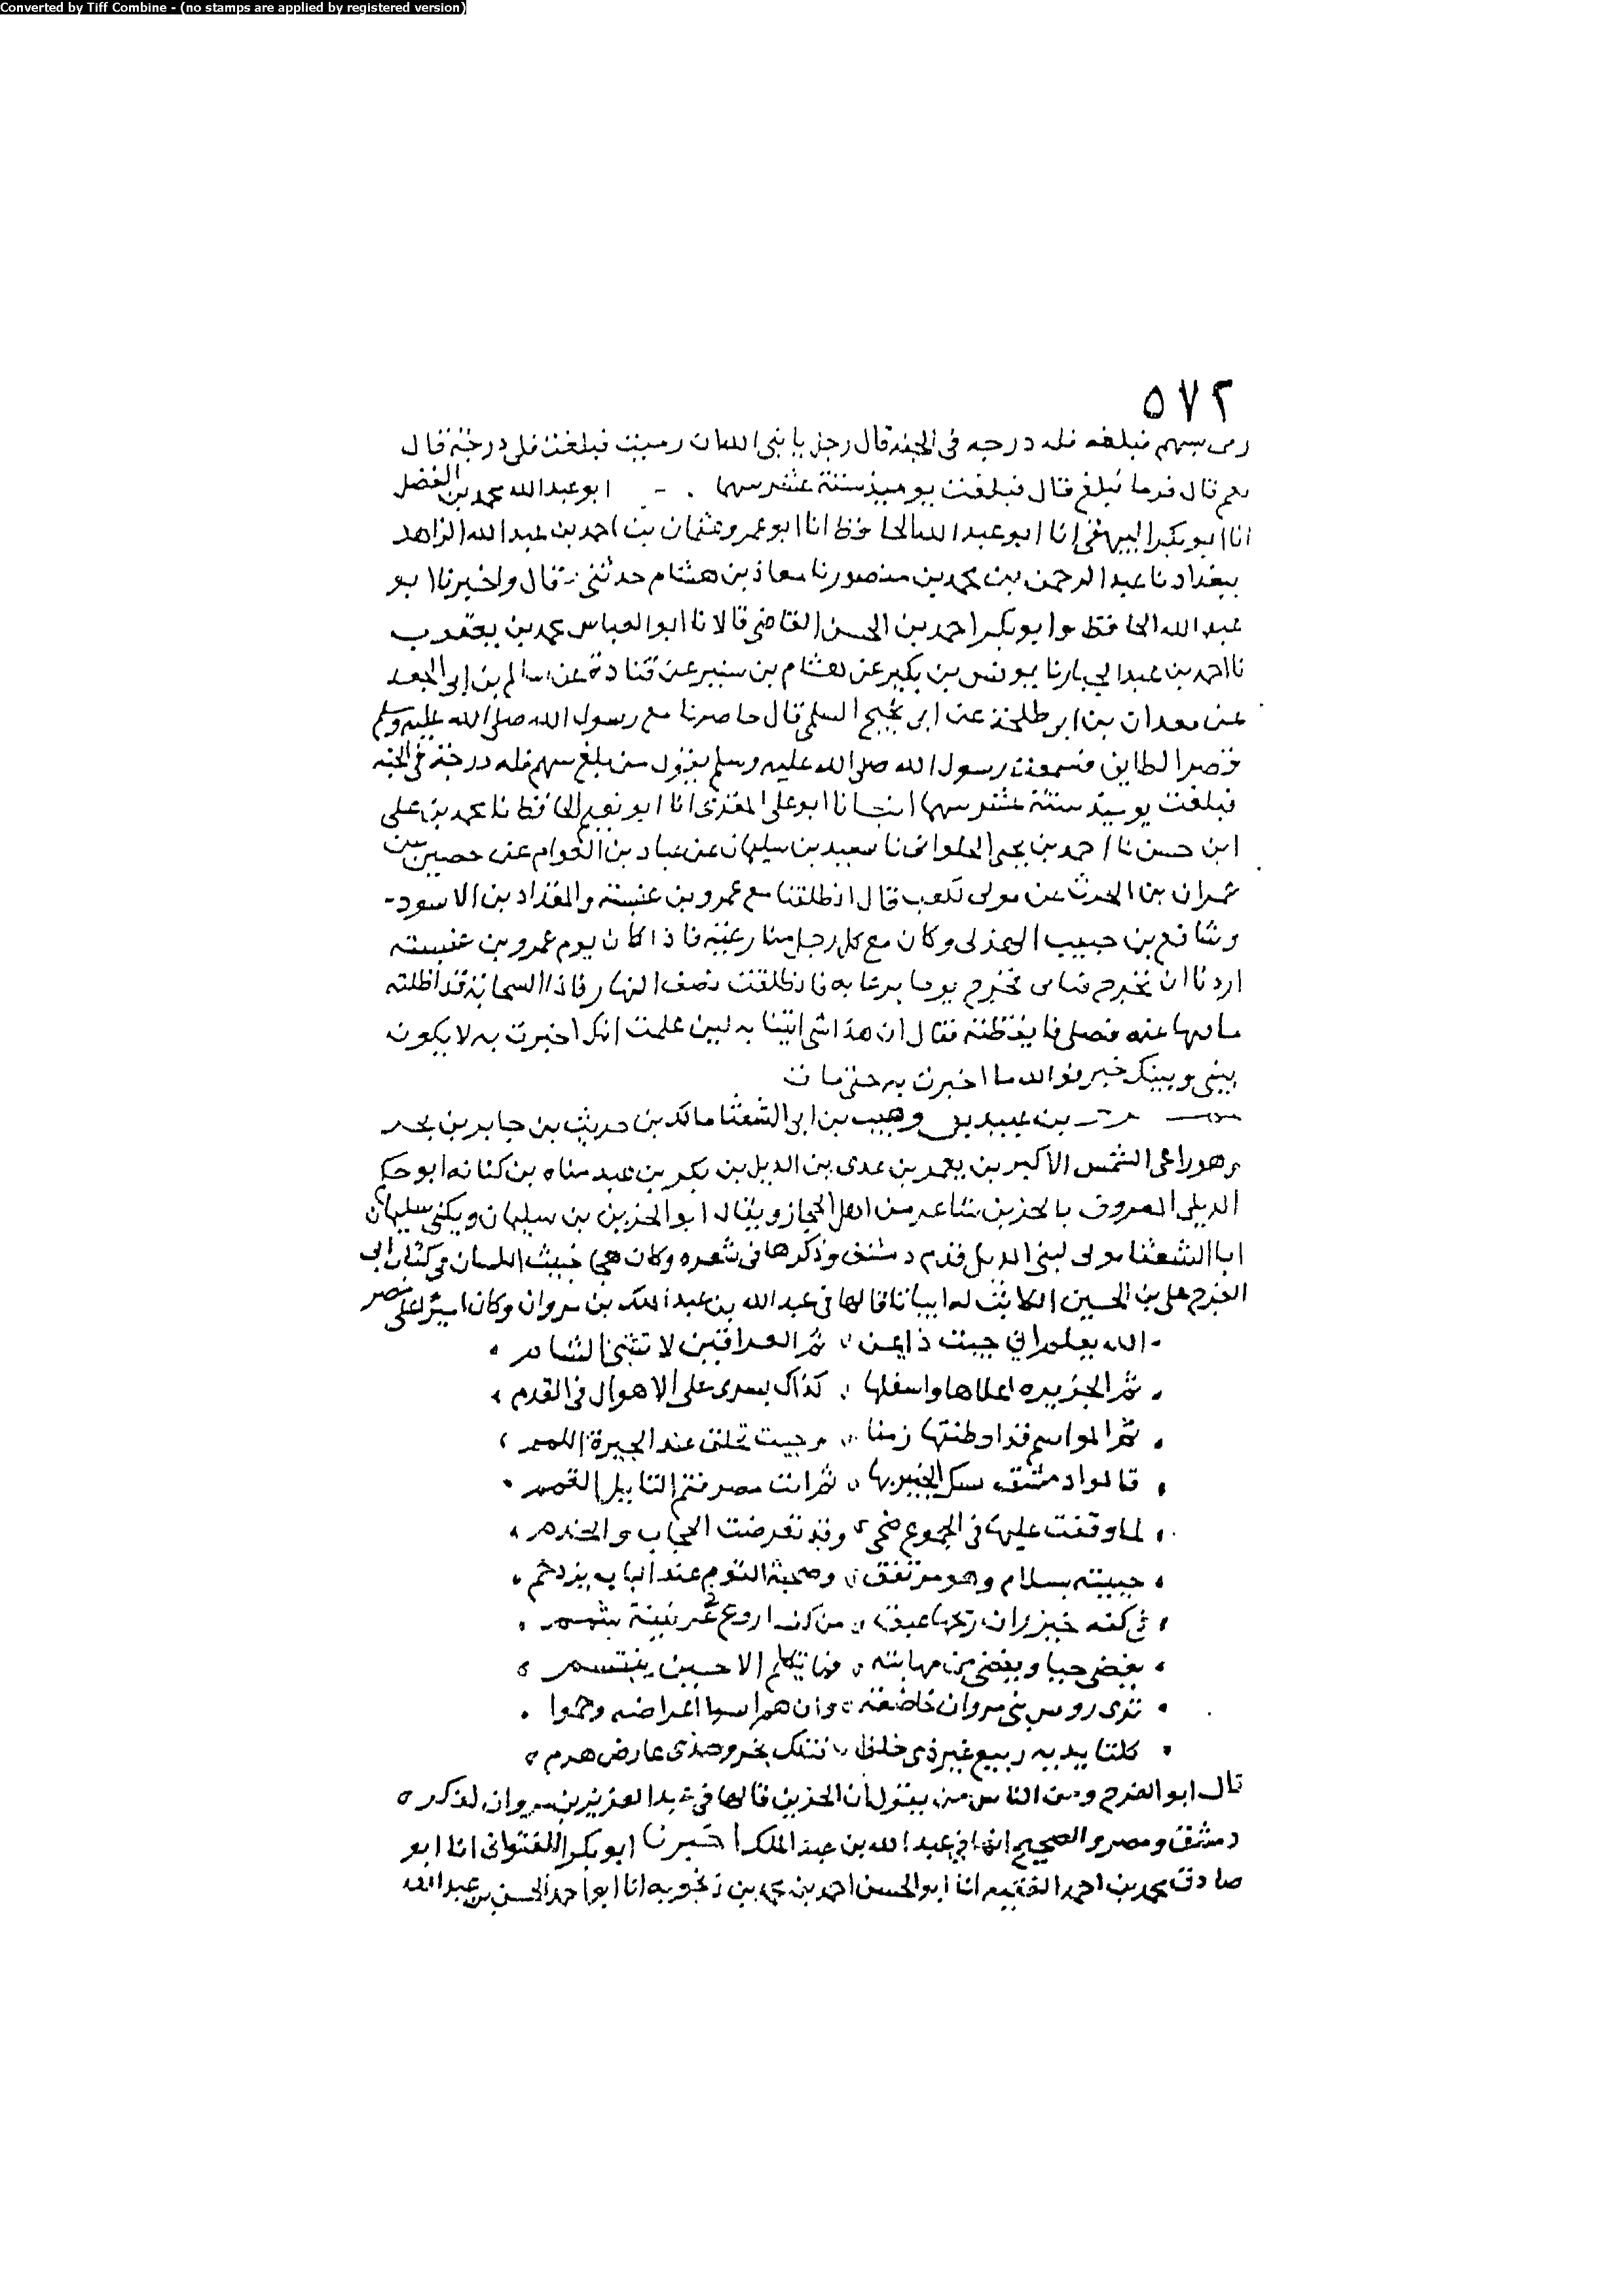 Converted by Tiff Combine - (no stamps are applied by registered version)
٥٧٢
رمى بسهم فبلغه فله درجه فى الجنه قال رجل يا نبى الله ان رميت فبلغت فلى درجة قال
نعم قال فرما فبلغ قال فبلغت يوميذ ستة عشر سهما ابو عبد الله محمد بن الفضل
انا ابو بكر البيهقى انا ابو عبد الله الحافظ انا ابو عمرو عثمان بن احمد بن عبد الله الزاهد
ببغداد نا عبد الرحمن بن محمد بن منصور نا معاذ بن هشام حدثنى قال واخبرنا ابو
عبد الله الحافظ وابو بكر احمد بن الحسن القاضى قالا نا ابو العباس محمد بن يعقوب
نا احمد بن عبد الجبار نا يونس بن بكير عن هشام بن سنبر عن قتادة عن سالم بن ابى الجعد
عن معدان بن ابى طلحة عن ابى نجيح السلمى قال حاصرنا مع رسول الله صلى الله عليه وسلم
قصر الطايف فسمعت رسول الله صلى الله عليه وسلم يقول من بلغ بسهم فله درجة فى الجنه
فبلغت يوميذ ستة عشر سهما انبانا ابو على المقرى انا ابو نعيم الحافظ نا محمد بن على
ابن حسن نا احمد بن يحيى الحلوانى نا سعيد بن سليمان عن عباد بن العوام عن حصين بن
عمران بن الحرث عن مولى لكعب قال انطلقنا مع عمرو بن عنبسة والمقداد بن الاسود
وشافع بن حبيب الهذلى وكان مع كل رجل منا رعية فاذا كان يوم عمرو بن عنبسته
اردنا ان نخرج فيخرج يوما برعايه فانطلقت نصف النهار فاذا السحابة قد اظلته
ما لها عنه فصلى فايقظته فقال ان هذا شى اتينا به لين علمت انك اخبرت به لا يكون
بينى وبينك خير فوالله ما اخبرت به حتى مات
بن عبيد بن وهيب بن ابى الشعثا مالك بن حريث بن جابر بن بحر
وهو راعى الشمس الاكبر بن يعمر بن عدى بن الديل بن بكر بن عبد مناه بن كنانه ابو حكم
الديلى المعروف بالحزين شاعر من اهل الحجاز ويقال ابو الحزين بن سليمان ويكنى سليمان
ابا الشعثا مولى لبنى الديل قدم دمشق وذكرها فى شعره وكان هجا خبيث اللسان فى كتاب ابى
الفرج على بن الحسين الكاتب له ابياتا قالها فى عبد الله بن عبد الملك بن مروان وكان اميرا على مصر
الله يعلم انى جبت ذا يمن ثم العراقين لا تثنى السام
ثم الجزيره اعلاها واسفلها كذاك يسرى على الاهوال فى القدم
ثم المواسم قد اوطنتها زمنا وجيت تحلق عند الجيرة اللمم
قالوا دمشق الخبير بها ثم ات مصر فثم النايل القمم
لما وقفت عليها فى الجموع ضحى وقد تعرضت الحجاب والخدم
حييته بسلام وهو مرتفق وضجة القوم عند الباب يزدحم
فى كفه خيزران ريحها عبق من كف اروع فى عرنينه شمم
يغضى حيا ويغضى من مهابته فما يكلم الا حين يبتسم
ترى روس بنى مروان خاضعة وان هم اعراضه وجموا
كلتا يديه ربيع غير ذى خلف فتلك بحر وهذى عارض هرم
قال ابو الفرج ومن الناس من يقول ان الحزين قالها فى عبد العزيز بن مروان لذكره
دمشق ومصر والصحيح انها فى عبد الله بن عبد الملك اخبرنا ابو بكر اللفتوانى انا ابو
صادق محمد بن احمد الفقيه انا ابو الحسن احمد بن محمد بن زنجويه انا ابو احمد الحسن بن عبد الله